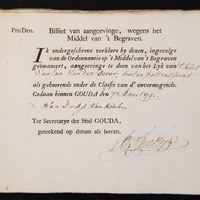 Pro Deo. Billiet van aangeevinge, wegens het
Middel van 't Begraven.
IK ondergeschreve verklare by dezen, ingevolge
van de Ordonnantie op 't Middel van 't Begraven
geëmaneert, aangeevinge te doen van het Lyk van 't kind
van Jan Van den
als gehoorende onder de Classis van d' onvermogende.
Gedaan binnen GOUDA, den 7
Ter Secretarye der Stad GOUDA,
geteekend op datum als boven.